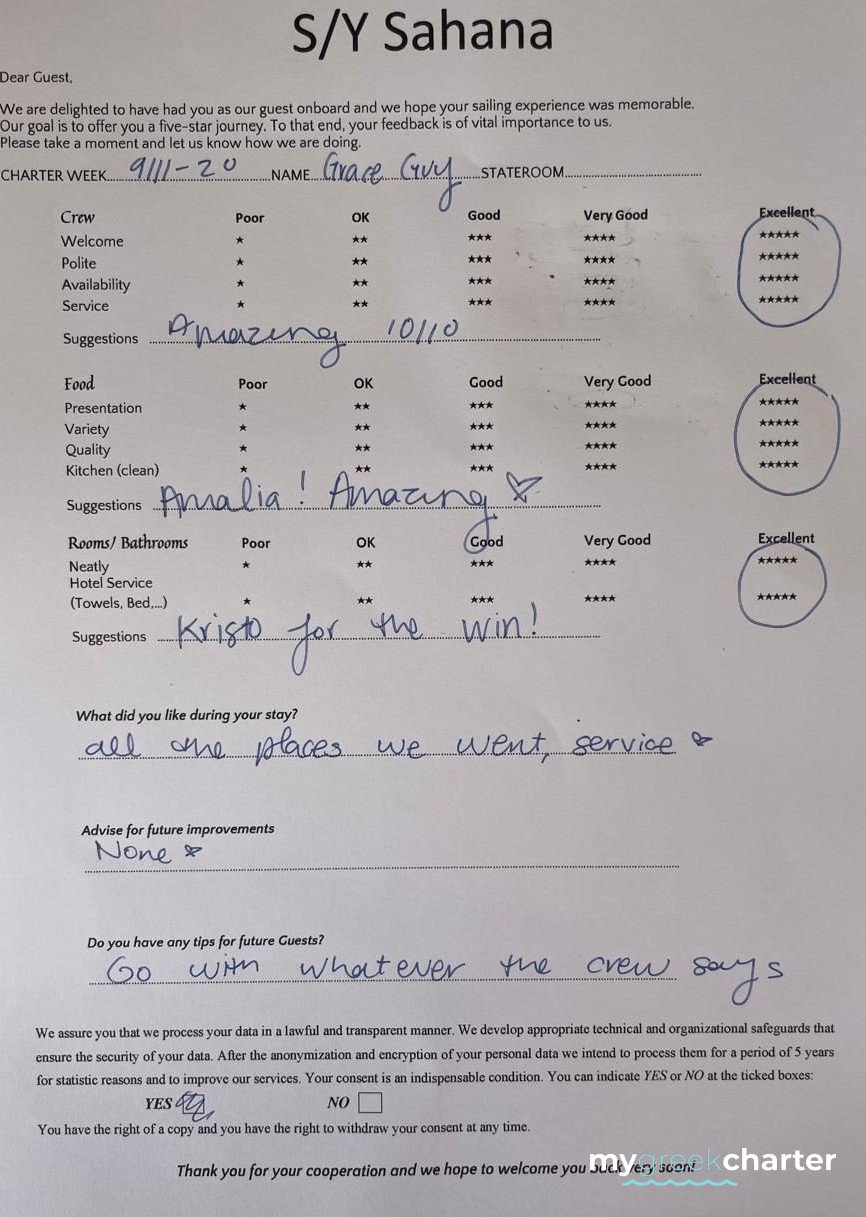 S/Y Sahana
Dear Guest,
We are delighted to have had you as our guest onboard and we hope your sailing experience was memorable.
Our goal is to offer you a five-star journey. To that end, your feedback is of vital importance to us.
Please take a moment and let us know how we are doing.
CHARTER WEEK 9/11-20 NAME Grace Guy STATEROOM
Crew Poor OK Good Very Good Excellent
Welcome ★ ★★ ★★★ ★★★★ ★★★★★
Polite ★ ★★ ★★★ ★★★★ ★★★★★
Availability ★ ★★ ★★★ ★★★★ ★★★★★
Service ★ ★★ ★★★ ★★★★ ★★★★★
Suggestions Amazing 10/10
Food Poor OK Good Very Good Excellent
Presentation ★ ★★ ★★★ ★★★★ ★★★★★
Variety ★ ★★ ★★★ ★★★★ ★★★★★
Quality ★ ★★ ★★★ ★★★★ ★★★★★
Kitchen (clean) ★ ★★ ★★★ ★★★★ ★★★★★
Suggestions Amalia! Amazing ♡
Rooms/ Bathrooms Poor OK Good Very Good Excellent
Neatly ★ ★★ ★★★ ★★★★ ★★★★★
Hotel Service
(Towels, Bed,...) ★ ★★ ★★★ ★★★★ ★★★★★
Suggestions Kristo for the win!
What did you like during your stay?
all the places we went, service ♡
Advise for future improvements
None ♡
Do you have any tips for future Guests?
Go with whatever the crew says
We assure you that we process your data in a lawful and transparent manner. We develop appropriate technical and organizational safeguards that
ensure the security of your data. After the anonymization and encryption of your personal data we intend to process them for a period of 5 years
for statistic reasons and to improve our services. Your consent is an indispensable condition. You can indicate YES or NO at the ticked boxes:
YES NO
You have the right of a copy and you have the right to withdraw your consent at any time.
Thank you for your cooperation and we hope to welcome you back very soon!
mygreekcharter